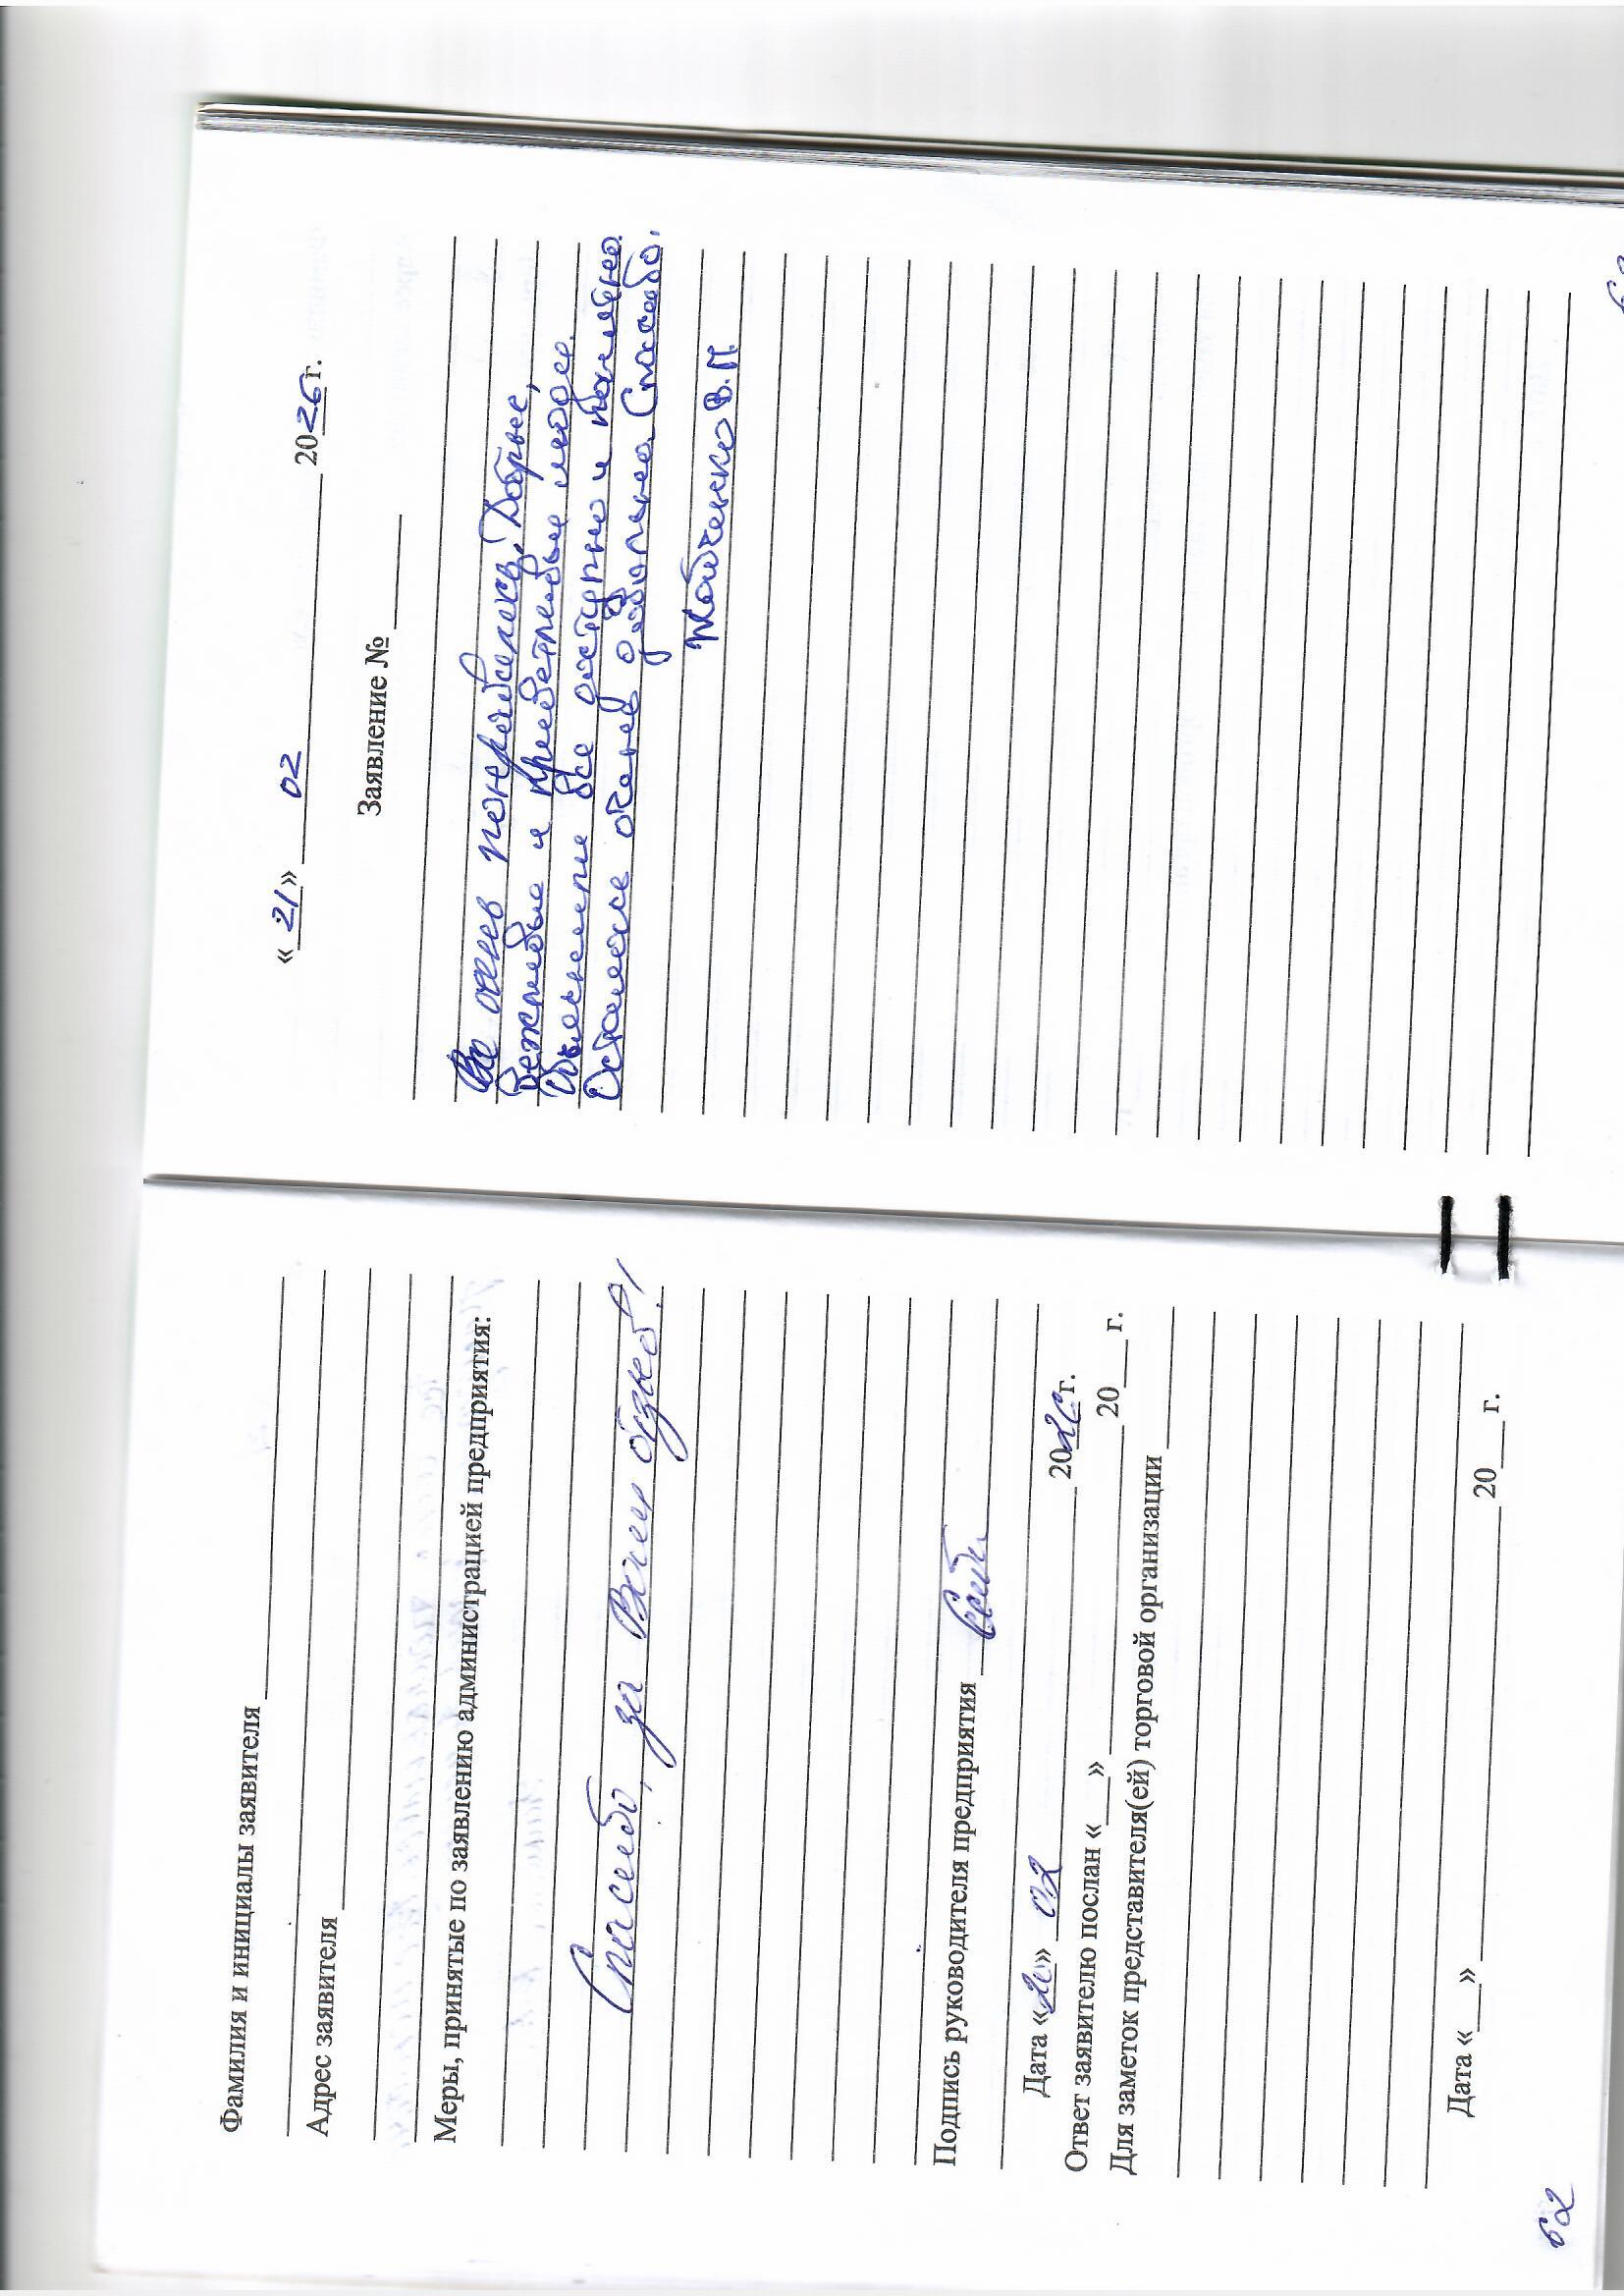 Фамилия и инициалы заявителя
Адрес заявителя
Меры, принятые по заявлению администрацией предприятия:
Спасибо, за Ваш отзыв!
Подпись руководителя предприятия
Дата «20» 02 2026 г.
Ответ заявителю послан «___» 20___ г.
Для заметок представителя(ей) торговой организации
Дата «___» 20___ г.
62
«21» 02 2026 г.
Заявление №
Все очень понравилось. Добрые,
вежливые и приветливые люди.
Объяснили все доступно и понятно.
Осталась очень довольна. Спасибо.
В.П.